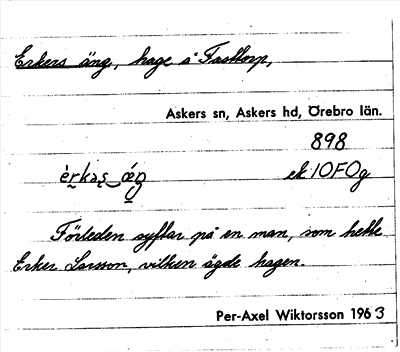 Erkers äng, hage å Fasttorp,
Askers sn, Askers hd, Örebro län.
898
èrkəs‿ǽŋ ek 10F0g
Förleden syftar på en man, som hette
Erker Larsson, vilken ägde hagen.
Per-Axel Wiktorsson 1963